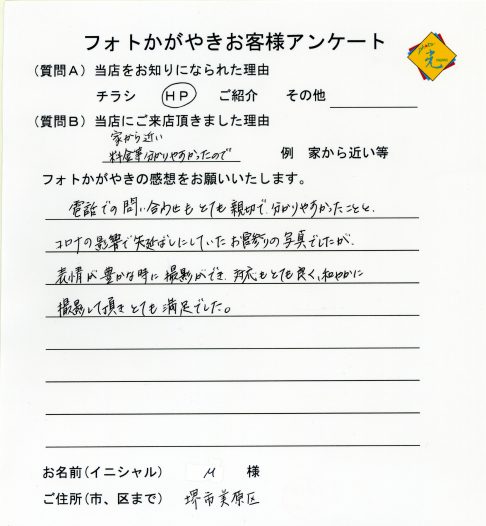 フォトかがやきお客様アンケート
(質問A)当店をお知りになられた理由
チラシ HP ご紹介 その他
(質問B)当店にご来店頂きました理由
家から近い
料金等分かりやすかったので 例 家から近い等
フォトかがやきの感想をお願いいたします。
電話での問い合わせもとても親切で、分かりやすかったことと、
コロナの影響で先延ばしにしていたお宮参りの写真でしたが、
表情が豊かな時に撮影ができ、対応もとても良く、和やかに
撮影して頂きとても満足でした。
お名前(イニシャル) M 様
ご住所(市、区まで) 堺市美原区